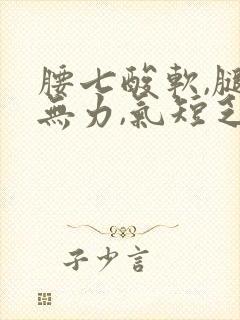 腰七酸軟,腿
無力,氣短乏
子少言